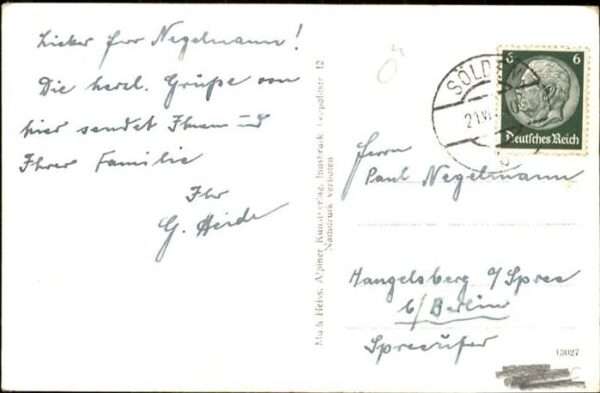 Lieber Herr Negelmann!
Die herzl. Grüße von
hier sendet Ihnen und
Ihrer Familie
Ihr
G. Heide
Much Heiss, Alpiner Kunstverlag, Innsbruck,
Nachdruck verboten
SÖLD
6 6
Deutsches Reich
Herrn
Paul Negelmann
Hangelsberg a/Spree
b/Berlin
Spreeufer
13027